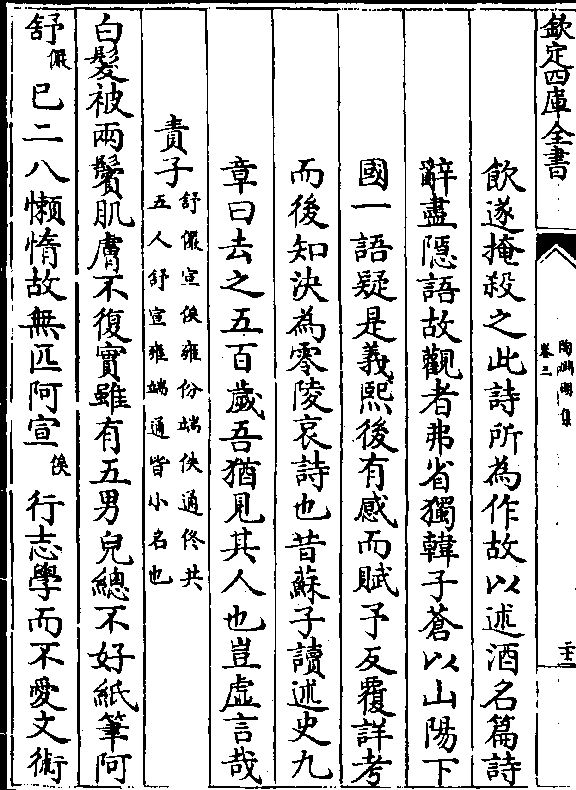 欽定四庫全書
陶淵明集
卷三
二十三
飲遂掩殺之此詩所為作故以述酒名篇詩
辭盡隱語故觀者弗省獨韓子蒼以山陽下
國一語疑是義熙後有感而賦予反覆詳考
而後知決為零陵哀詩也昔蘇子讀述史九
章曰去之五百歲吾猶見其人也豈虛言哉
責子舒儼宣俟雍份端佚通佟共
五人舒宣雍端通皆小名也
白髮被兩鬢肌膚不復實雖有五男兒總不好紙筆阿
舒儼已二八懶惰故無匹阿宣俟行志學而不愛文術